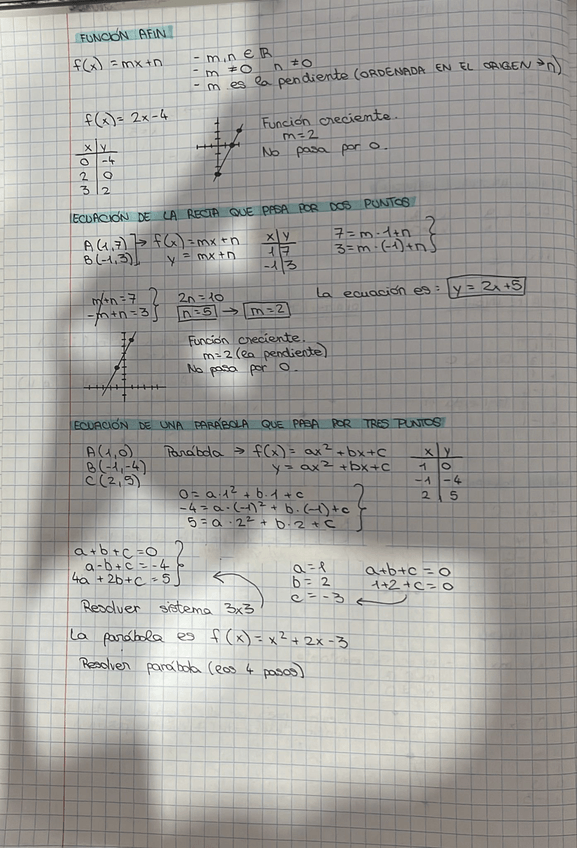 FUNCIÓN AFIN
f(x) = mx+n
- m,n ∈ ℝ
- m ≠0 n ≠0
- m es la pendiente (ORDENADA EN EL ORIGEN → n)
f(x) = 2x-4
x | y
0 | -4
2 | 0
3 | 2
Función creciente.
m=2
No pasa por 0.
ECUACIÓN DE LA RECTA QUE PASA POR DOS PUNTOS
A(1,7)
B(-1,3)
→ f(x) = mx+n
y = mx+n
x | y
1 | 7
-1 | 3
7 = m·1+n
3 = m·(-1)+n
m+n = 7
-m+n = 3
2n = 10
n=5 → m=2
La ecuación es: y = 2x+5
Función creciente.
m=2 (la pendiente)
No pasa por 0.
ECUACIÓN DE UNA PARÁBOLA QUE PASA POR TRES PUNTOS
A(1,0)
B(-1,-4)
C(2,5)
Parábola → f(x) = ax² + bx + c
y = ax² + bx + c
x | y
1 | 0
-1 | -4
2 | 5
0 = a·1² + b·1 + c
-4 = a·(-1)² + b·(-1) + c
5 = a·2² + b·2 + c
a+b+c = 0
a-b+c = -4
4a+2b+c = 5
Resolver sistema 3x3
a=1
b=2
c=-3
a+b+c = 0
1+2+c = 0
La parábola es f(x) = x² + 2x - 3
Resolver parábola (los 4 pasos)